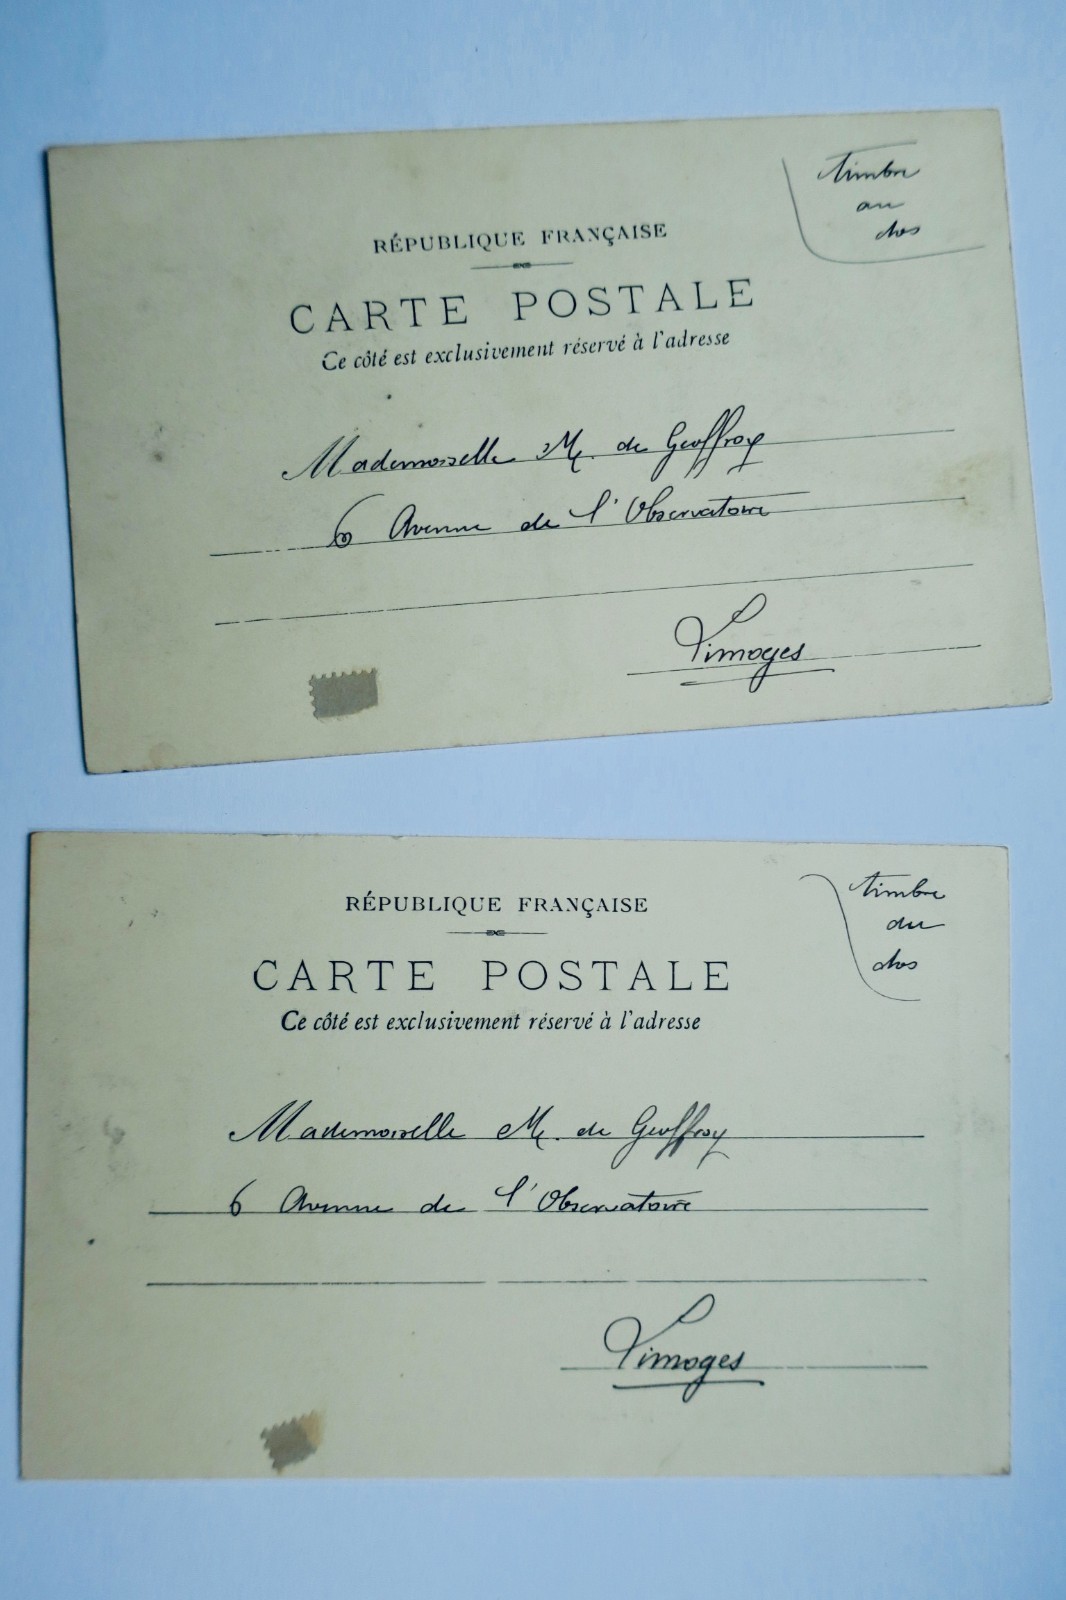 RÉPUBLIQUE FRANÇAISE
CARTE POSTALE
Ce côté est exclusivement réservé à l'adresse
timbre
au
dos
Mademoiselle M. de Geoffroy
6 Avenue de l'Observatoire
Limoges
RÉPUBLIQUE FRANÇAISE
CARTE POSTALE
Ce côté est exclusivement réservé à l'adresse
timbre
au
dos
Mademoiselle M. de Geoffroy
6 Avenue de l'Observatoire
Limoges